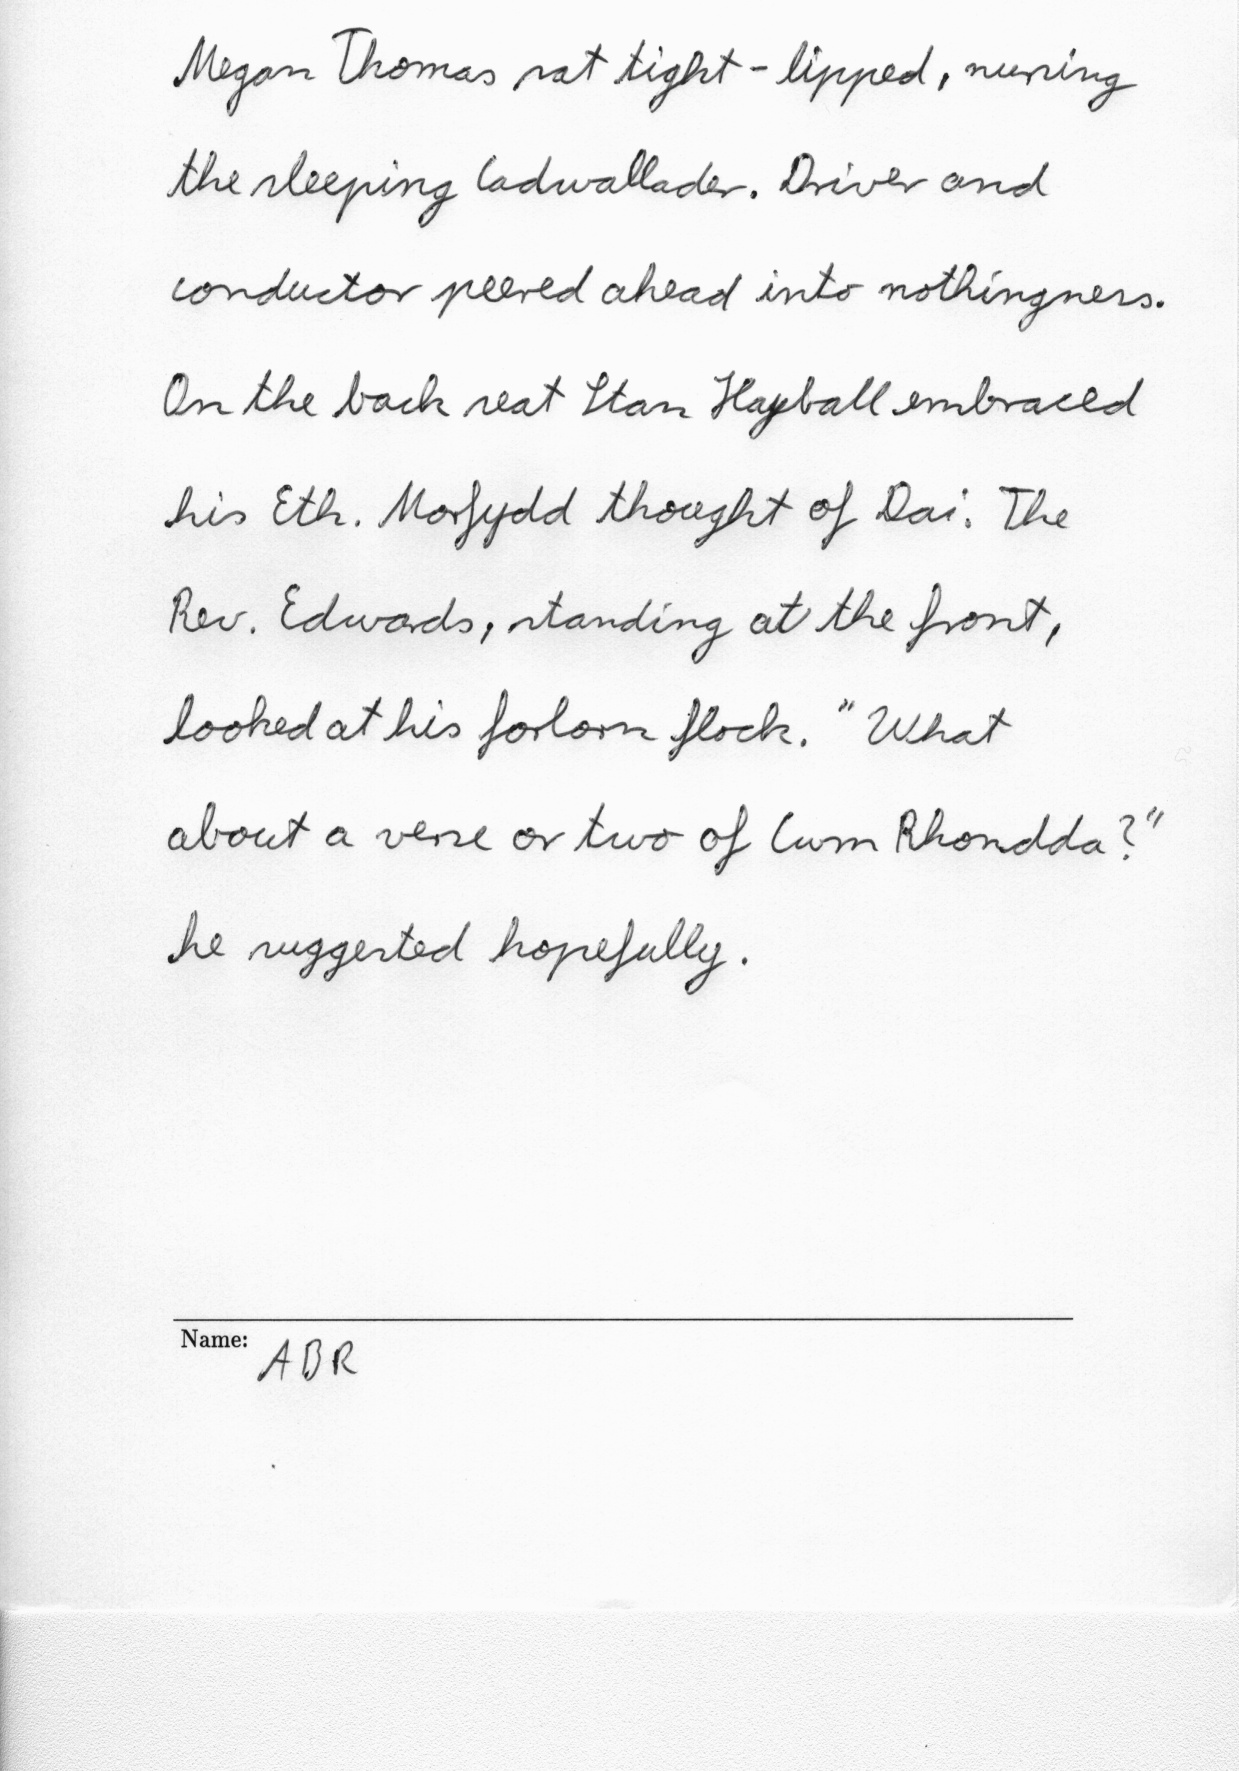 Megan Thomas sat tight-lipped, nursing
the sleeping Cadwallader. Driver and
conductor peered ahead into nothingness.
On the back seat Stan Hayball embraced
his Eth. Morfydd thought of Dai. The
Rev. Edwards, standing at the front,
looked at his forlorn flock. "What
about a verse or two of Cwm Rhondda?"
he suggested hopefully.
Name: ABR